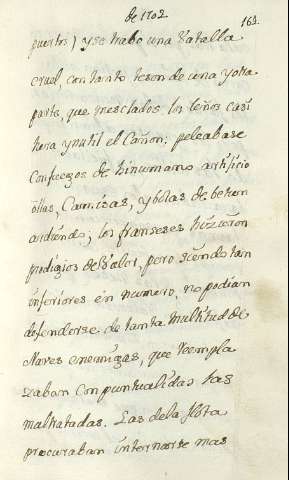 de 1702
163.
puertos) y se trabo una vatalla
cruel, con tanto teson de una y otra
parte, que mesclados los leños casi
hera ynutil el Cañon: peleabase
con fuegos de hinumano artificio
ollas, Camisas, y bolas de betun
ardiendo; los franseses hizieron
prodigios de valor, pero siendo tan
inferiores en numero, no podian
defenderse de tanta multitud de
Naves enemigas, que reempla
zaban con puntualidad las
maltratadas. Las de la flota
procuraban internarse mas